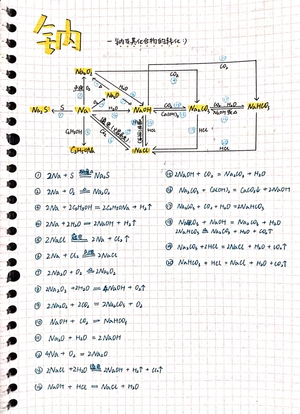 钠
一、钠及其化合物的转化
Na₂O₂
Na₂O
Na₂S
S
Na
NaOH
Na₂CO₃
NaHCO₃
C₂H₅OH
C₂H₅ONa
NaCl
CO₂
H₂O
HCl
① 2Na + S = Na₂S
② 2Na + O₂ = Na₂O₂
③ 2Na + 2C₂H₅OH = 2C₂H₅ONa + H₂↑
④ 2Na + 2H₂O = 2NaOH + H₂↑
⑤ 2NaCl = 2Na + Cl₂↑
⑥ 2Na + Cl₂ = 2NaCl
⑦ 2Na₂O + O₂ = 2Na₂O₂
⑧ 2Na₂O₂ + 2H₂O = 4NaOH + O₂↑
⑨ 2Na₂O₂ + 2CO₂ = 2Na₂CO₃ + O₂
⑩ NaOH + CO₂ = NaHCO₃
⑪ Na₂O + H₂O = 2NaOH
⑫ 4Na + O₂ = 2Na₂O
⑬ 2NaCl + 2H₂O = 2NaOH + H₂↑ + Cl₂↑
⑭ NaOH + HCl = NaCl + H₂O
2NaOH + CO₂ = Na₂CO₃ + H₂O
Na₂CO₃ + Ca(OH)₂ = CaCO₃↓ + 2NaOH
Na₂CO₃ + CO₂ + H₂O = 2NaHCO₃
NaHCO₃ + NaOH = Na₂CO₃ + H₂O
2NaHCO₃ = Na₂CO₃ + H₂O + CO₂↑
Na₂CO₃ + 2HCl = 2NaCl + H₂O + CO₂↑
NaHCO₃ + HCl = NaCl + H₂O + CO₂↑